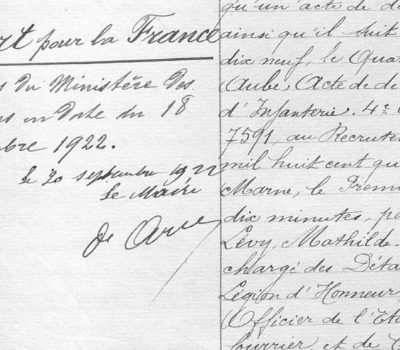 rt pour la France
s du Ministère des
s en date du 18
bre 1922.
le 20 septembre 1922
Le Maire
qu'un acte de dé
ainsi qu'il suit
dix neuf, le Qua
(Aube, Acte de de
d'Infanterie. 4e
7591 au Recrute
mil huit cent qu
Marne, le Premi
dix minutes, pe
Lévy, Mathilde.
chargé des Déta
Légion d'Honneur,
Officier de l'Eta
fourrier et de